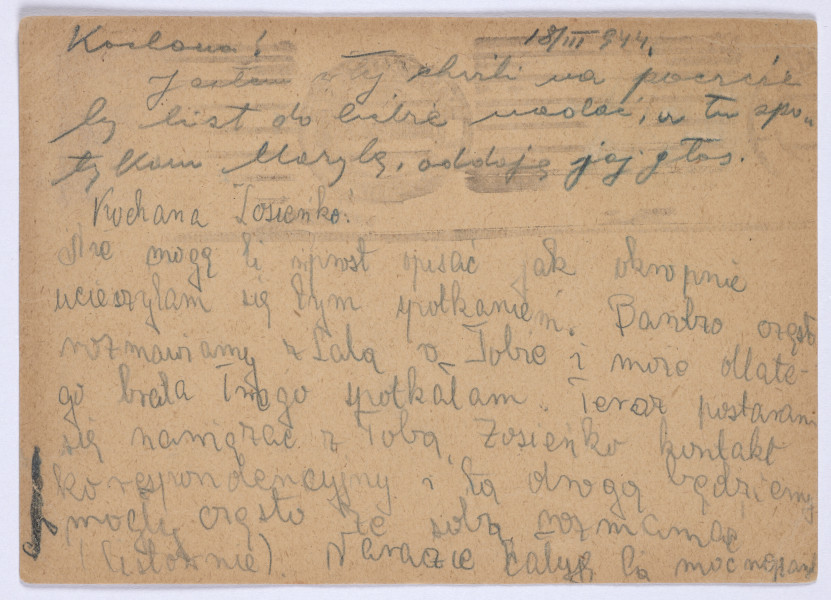 Kochana! 18/III 944.
Jestem w tej chwili na poczcie
by list do ciebie nadać, a tu spo„
tykam Marylę, oddaję jej głos.
Kochana Zosieńko!
Nie mogę Ci wprost opisać jak okropnie
ucieszyłam się tym spotkaniem. Bardzo często
rozmawiamy z Lalą o Tobie i może dlate-
go brata Twego spotkałam. Teraz postaram
się nawiązać z Tobą, Zosieńko kontakt
korespondencyjny i tą drogą będziemy
mogły często ze sobą rozmawiać
(listownie). Narazie całuję Cię mocno